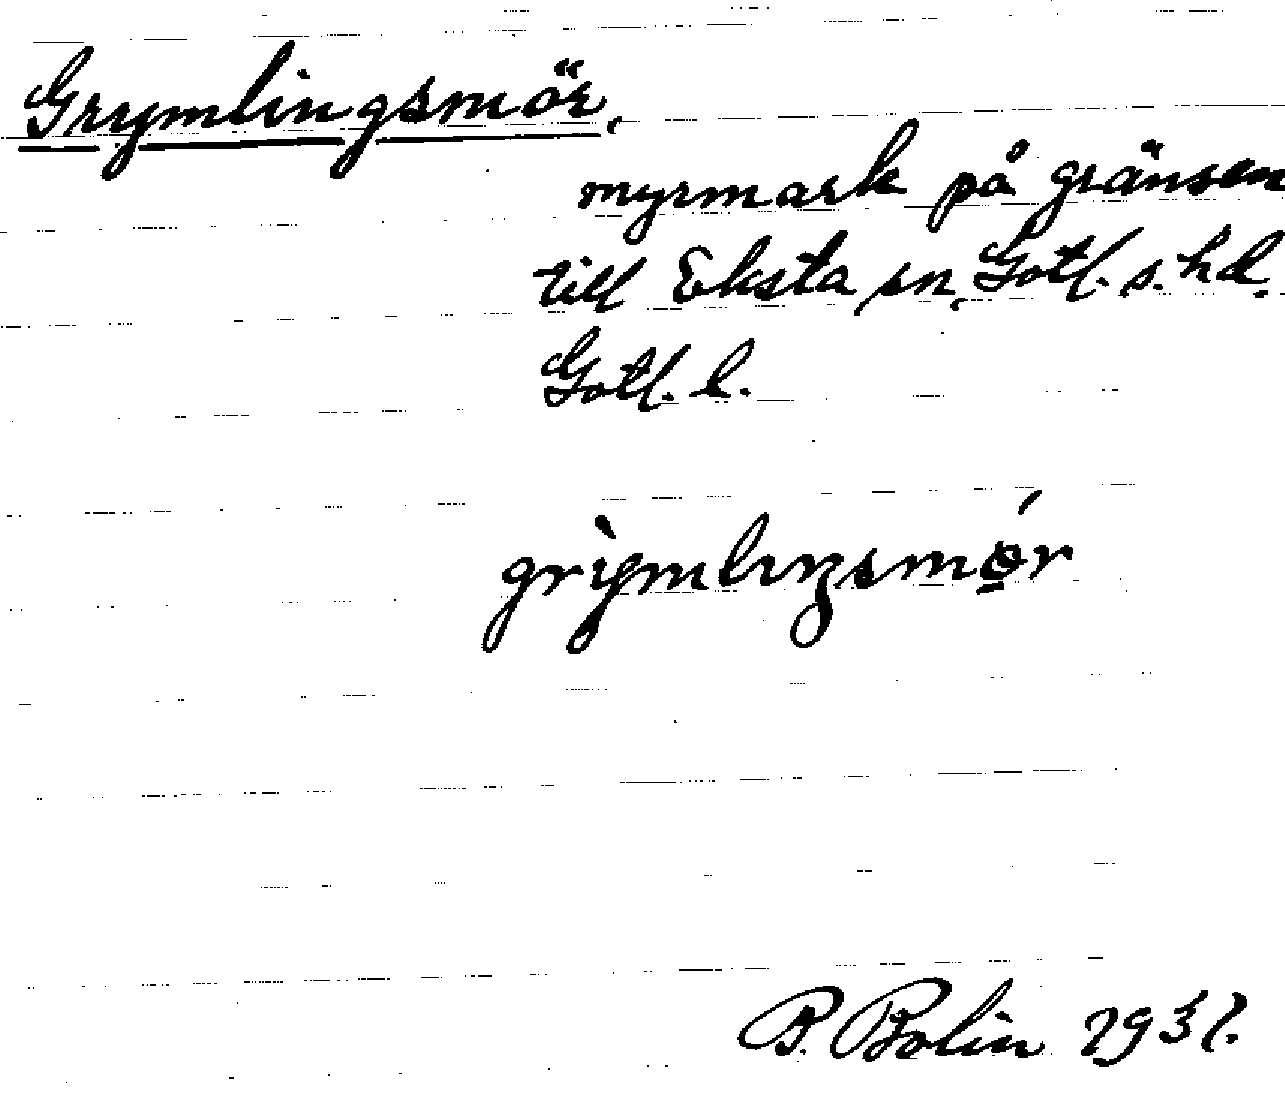 Grymlingsmör.
myrmark på gränsen
till Eksta sn, Gotl. s. hd.
Gotl. l.
grỳmlıŋsmǿ̠r
B. Bolin 1931.